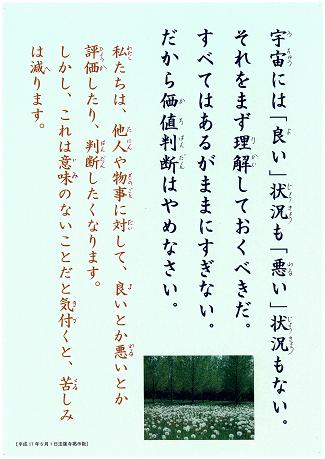 宇宙には「良い」状況も「悪い」状況もない。
それをまず理解しておくべきだ。
すべてはあるがままにすぎない。
だから価値判断はやめなさい。
私たちは、他人や物事に対して、良いとか悪いとか
評価したり、判断したくなります。
しかし、これは意味のないことだと気付くと、苦しみ
は減ります。